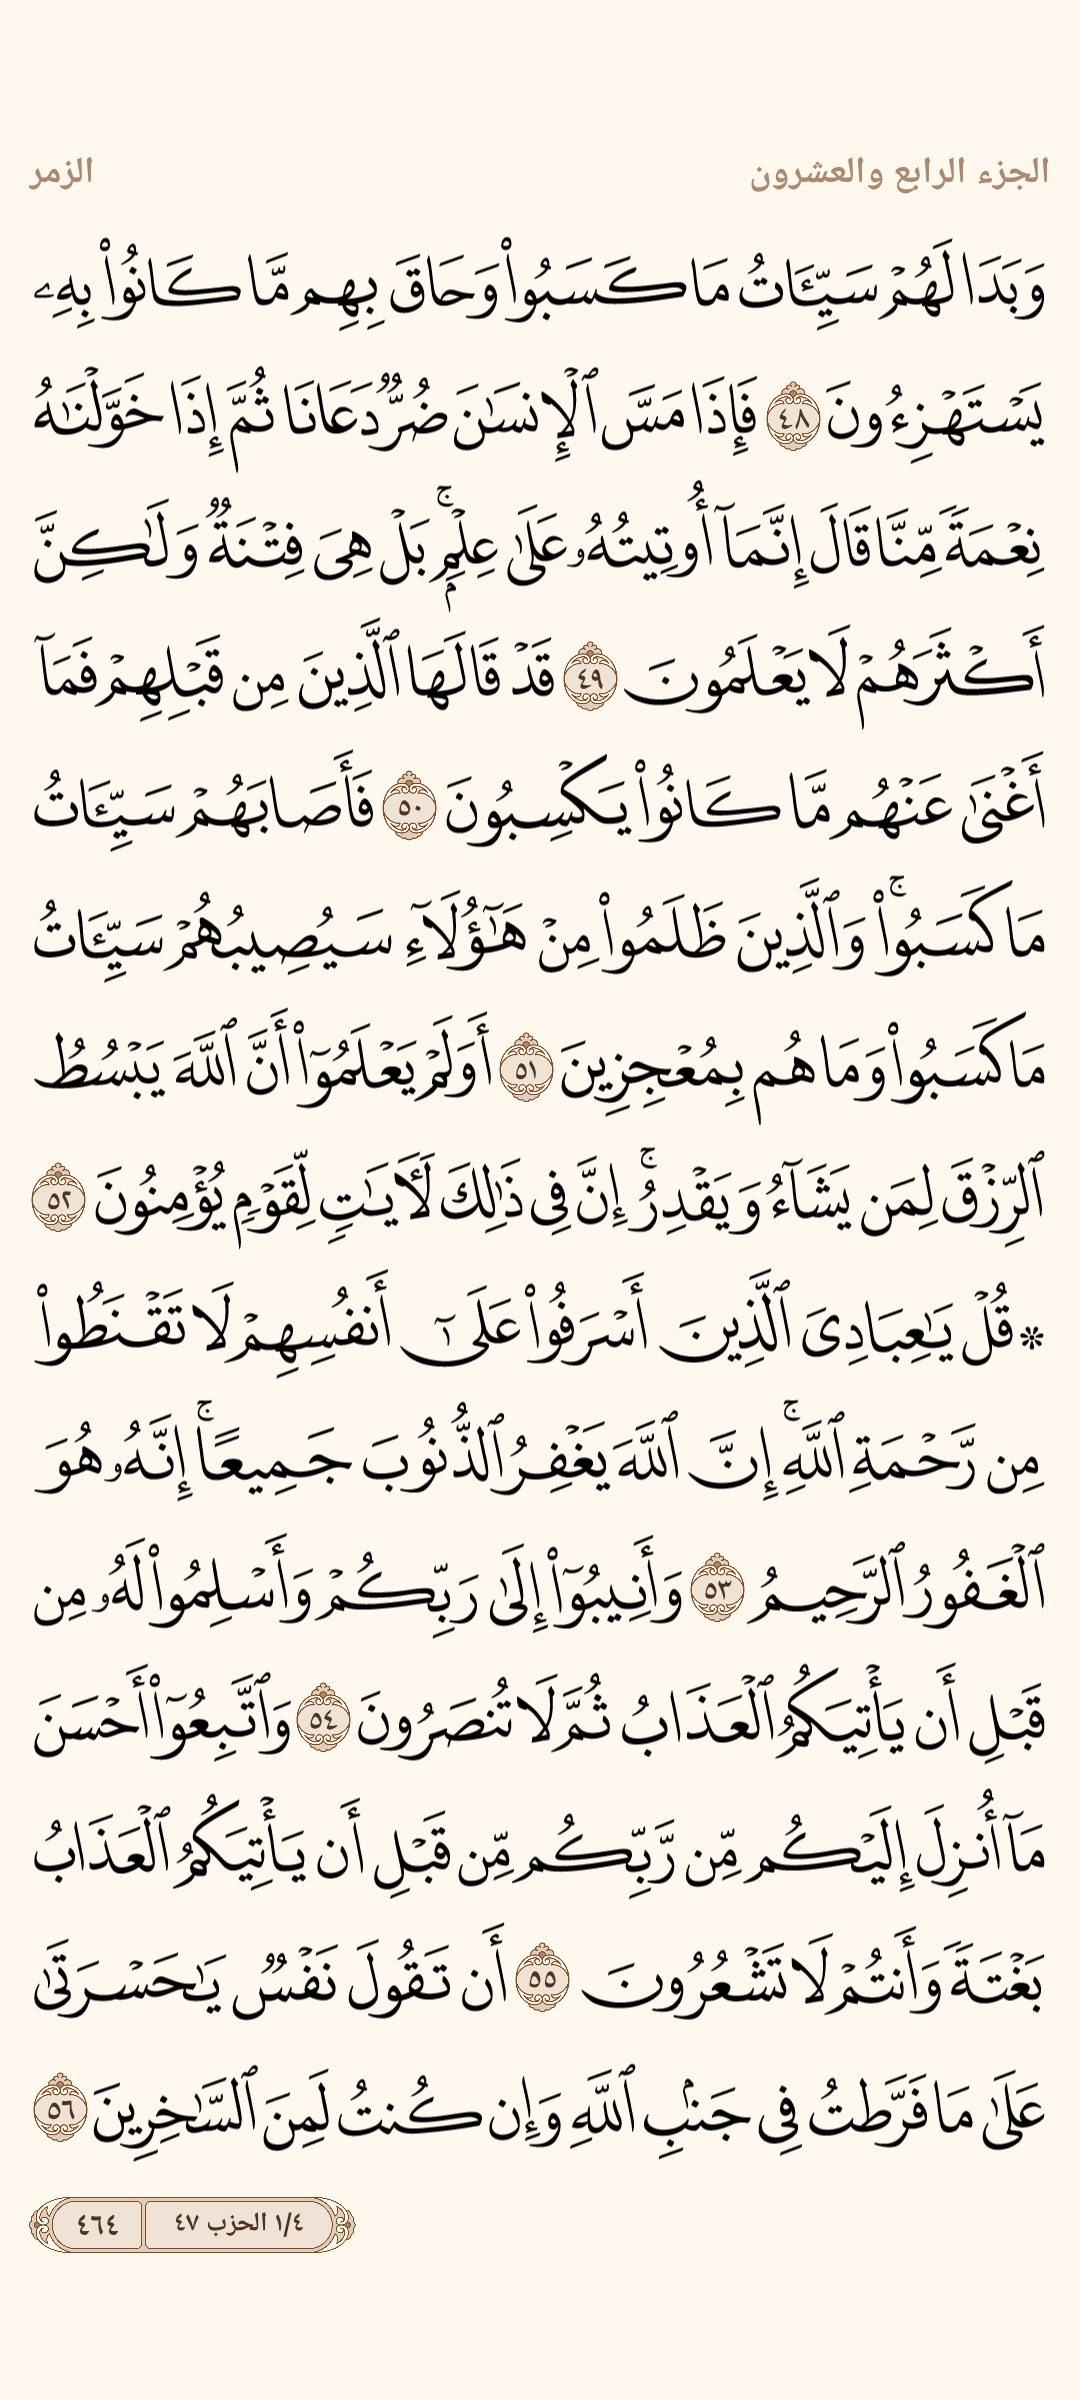 الجزء الرابع والعشرون
الزمر
وَبَدَا لَهُمْ سَيِّـَٔاتُ مَا كَسَبُوا۟ وَحَاقَ بِهِم مَّا كَانُوا۟ بِهِۦ
يَسْتَهْزِءُونَ ٤٨ فَإِذَا مَسَّ ٱلْإِنسَـٰنَ ضُرٌّ دَعَانَا ثُمَّ إِذَا خَوَّلْنَـٰهُ
نِعْمَةً مِّنَّا قَالَ إِنَّمَآ أُوتِيتُهُۥ عَلَىٰ عِلْمٍۭ ۚ بَلْ هِىَ فِتْنَةٌ وَلَـٰكِنَّ
أَكْثَرَهُمْ لَا يَعْلَمُونَ ٤٩ قَدْ قَالَهَا ٱلَّذِينَ مِن قَبْلِهِمْ فَمَآ
أَغْنَىٰ عَنْهُم مَّا كَانُوا۟ يَكْسِبُونَ ٥٠ فَأَصَابَهُمْ سَيِّـَٔاتُ
مَا كَسَبُوا۟ ۚ وَٱلَّذِينَ ظَلَمُوا۟ مِنْ هَـٰٓؤُلَآءِ سَيُصِيبُهُمْ سَيِّـَٔاتُ
مَا كَسَبُوا۟ وَمَا هُم بِمُعْجِزِينَ ٥١ أَوَلَمْ يَعْلَمُوٓا۟ أَنَّ ٱللَّهَ يَبْسُطُ
ٱلرِّزْقَ لِمَن يَشَآءُ وَيَقْدِرُ ۚ إِنَّ فِى ذَٰلِكَ لَـَٔايَـٰتٍ لِّقَوْمٍ يُؤْمِنُونَ ٥٢
۞ قُلْ يَـٰعِبَادِىَ ٱلَّذِينَ أَسْرَفُوا۟ عَلَىٰٓ أَنفُسِهِمْ لَا تَقْنَطُوا۟
مِن رَّحْمَةِ ٱللَّهِ ۚ إِنَّ ٱللَّهَ يَغْفِرُ ٱلذُّنُوبَ جَمِيعًا ۚ إِنَّهُۥ هُوَ
ٱلْغَفُورُ ٱلرَّحِيمُ ٥٣ وَأَنِيبُوٓا۟ إِلَىٰ رَبِّكُمْ وَأَسْلِمُوا۟ لَهُۥ مِن
قَبْلِ أَن يَأْتِيَكُمُ ٱلْعَذَابُ ثُمَّ لَا تُنصَرُونَ ٥٤ وَٱتَّبِعُوٓا۟ أَحْسَنَ
مَآ أُنزِلَ إِلَيْكُم مِّن رَّبِّكُم مِّن قَبْلِ أَن يَأْتِيَكُمُ ٱلْعَذَابُ
بَغْتَةً وَأَنتُمْ لَا تَشْعُرُونَ ٥٥ أَن تَقُولَ نَفْسٌ يَـٰحَسْرَتَىٰ
عَلَىٰ مَا فَرَّطتُ فِى جَنۢبِ ٱللَّهِ وَإِن كُنتُ لَمِنَ ٱلسَّـٰخِرِينَ ٥٦
١/٤ الحزب ٤٧
٤٦٤